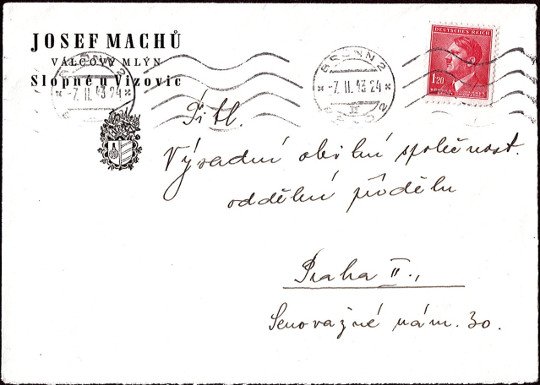 JOSEF MACHŮ
VÁLCOVÝ MLÝN
Slopné u Vizovic
BRÜNN 2
-7. II. 43 24
BRNO 2
BRÜNN 2
-7. II. 43 24
BRNO 2
DEUTSCHES REICH
1.20
Ti tl.
Výsadní obilní společnost.
oddělní přídělu
Praha II.,
Senovažné nám. 30.